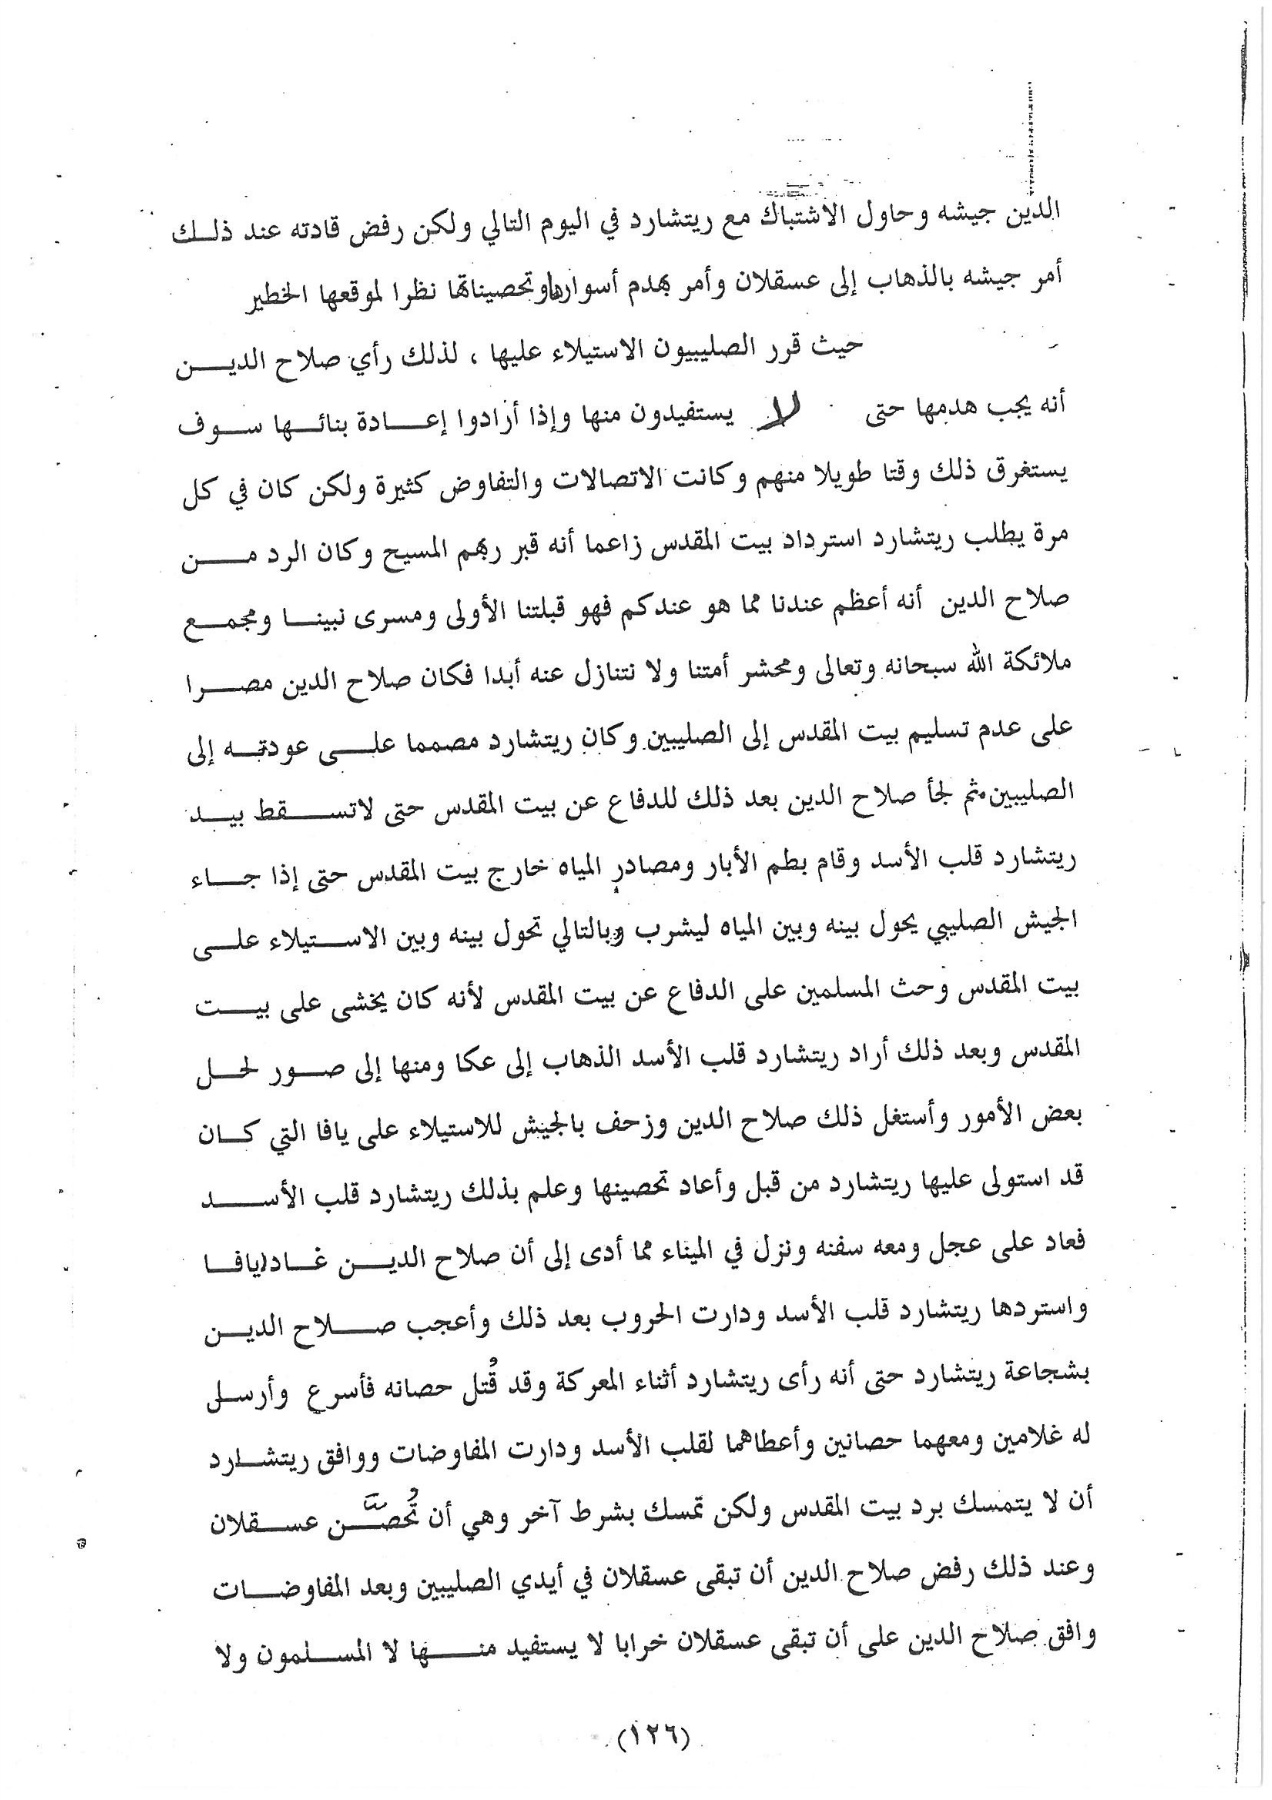 الدين جيشه وحاول الاشتباك مع ريتشارد في اليوم التالي ولكن رفض قادته عند ذلك
أمر جيشه بالذهاب إلى عسقلان وأمر بهدم أسوارها وتحصيناتها نظرا لموقعها الخطير
حيث قرر الصليبيون الاستيلاء عليها ، لذلك رأي صلاح الدين
أنه يجب هدمها حتى لا يستفيدون منها وإذا أرادوا إعادة بنائها سوف
يستغرق ذلك وقتا طويلا منهم وكانت الاتصالات والتفاوض كثيرة ولكن كان في كل
مرة يطلب ريتشارد استرداد بيت المقدس زاعما أنه قبر ربهم المسيح وكان الرد من
صلاح الدين أنه أعظم عندنا مما هو عندكم فهو قبلتنا الأولى ومسرى نبينا ومجمع
ملائكة الله سبحانه وتعالى ومحشر أمتنا ولا نتنازل عنه أبدا فكان صلاح الدين مصرا
على عدم تسليم بيت المقدس إلى الصليبين وكان ريتشارد مصمما على عودته إلى
الصليبين. ثم لجأ صلاح الدين بعد ذلك للدفاع عن بيت المقدس حتى لاتسقط بيد
ريتشارد قلب الأسد وقام بطم الأبار ومصادر المياه خارج بيت المقدس حتى إذا جاء
الجيش الصليبي يحول بينه وبين المياه ليشرب وبالتالي تحول بينه وبين الاستيلاء على
بيت المقدس وحث المسلمين على الدفاع عن بيت المقدس لأنه كان يخشى على بيت
المقدس وبعد ذلك أراد ريتشارد قلب الأسد الذهاب إلى عكا ومنها إلى صور لحل
بعض الأمور وأستغل ذلك صلاح الدين وزحف بالجيش للاستيلاء على يافا التي كان
قد استولى عليها ريتشارد من قبل وأعاد تحصينها وعلم بذلك ريتشارد قلب الأسد
فعاد على عجل ومعه سفنه ونزل في الميناء مما أدى إلى أن صلاح الدين غادر يافا
واستردها ريتشارد قلب الأسد ودارت الحروب بعد ذلك وأعجب صلاح الدين
بشجاعة ريتشارد حتى أنه رأى ريتشارد أثناء المعركة وقد قُتل حصانه فأسرع وأرسل
له غلامين ومعهما حصانين وأعطاهما لقلب الأسد ودارت المفاوضات ووافق ريتشارد
أن لا يتمسك برد بيت المقدس ولكن تمسك بشرط آخر وهي أن تُحصَّن عسقلان
وعند ذلك رفض صلاح الدين أن تبقى عسقلان في أيدي الصليبين وبعد المفاوضات
وافق صلاح الدين على أن تبقى عسقلان خرابا لا يستفيد منها لا المسلمون ولا
(١٢٦)